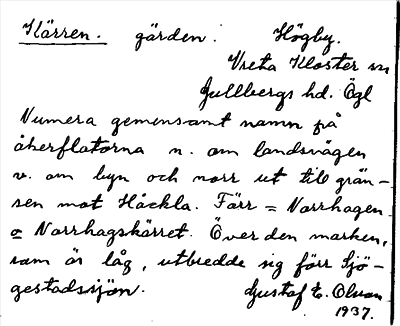 Kärren. gärden. Högby.
Vreta Kloster sn
Gullbergs hd. Ögl
Numera gemensamt namn på
åkerflatorna n. om landsvägen
v. om byn och norr ut till grän-
sen mot Håckla. Förr = Norrhagen
= Norrhagskärret. Över den marken,
som är låg, utbredde sig förr Sjö-
gestadssjön. Gustaf E. Olsson
1937.